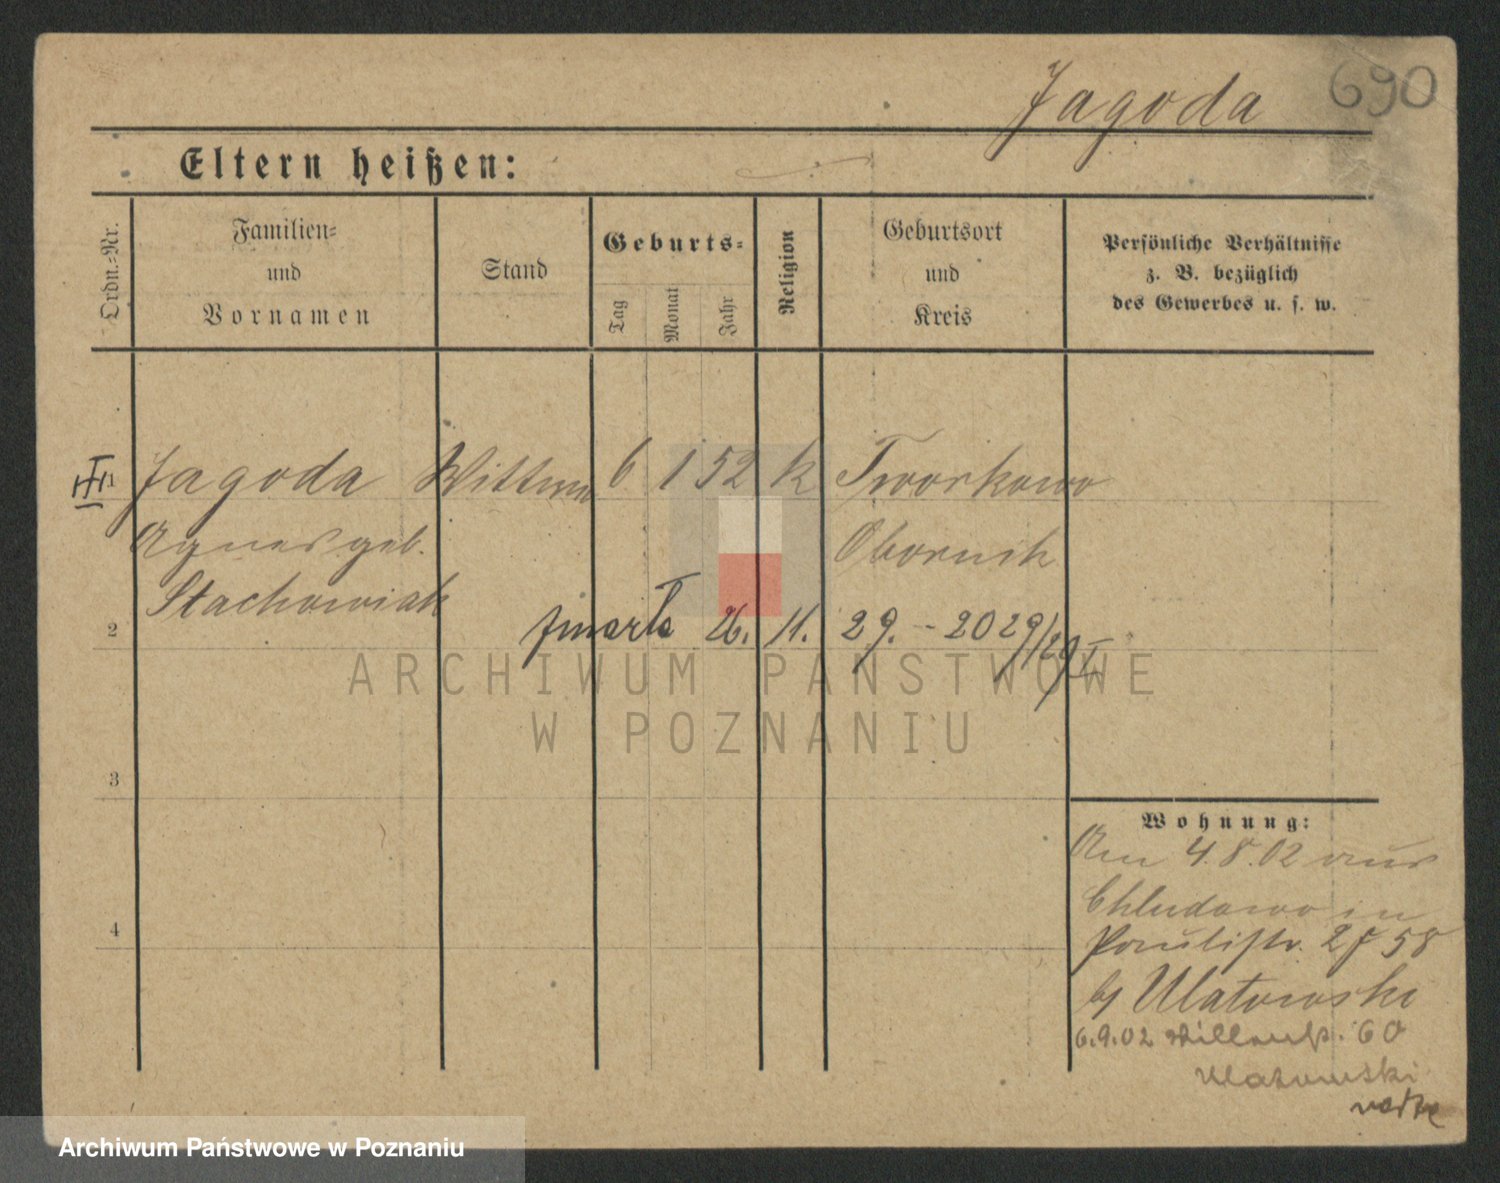 690
Jagoda
Eltern heißen:
Ordn.-Nr.
Familien-
und
Vornamen
Stand
Geburts-
Tag
Monat
Jahr
Religion
Geburtsort
und
Kreis
Persönliche Verhältnisse
z. B. bezüglich
des Gewerbes u. s. w.
1 Jagoda Wittwe 6 1 52 k Tworkowo
Agnes geb. Obornik
Stachowiak
2 zmarła 26. 11. 29. - 2029/29
ARCHIWUM PAŃSTWOWE
W POZNANIU
3
Wohnung:
Am 4.8.02 aus
Chludowo in
Paulistr. 58
4
b/ Ulatowski
6.9.02 60
Ulatowski
Archiwum Państwowe w Poznaniu